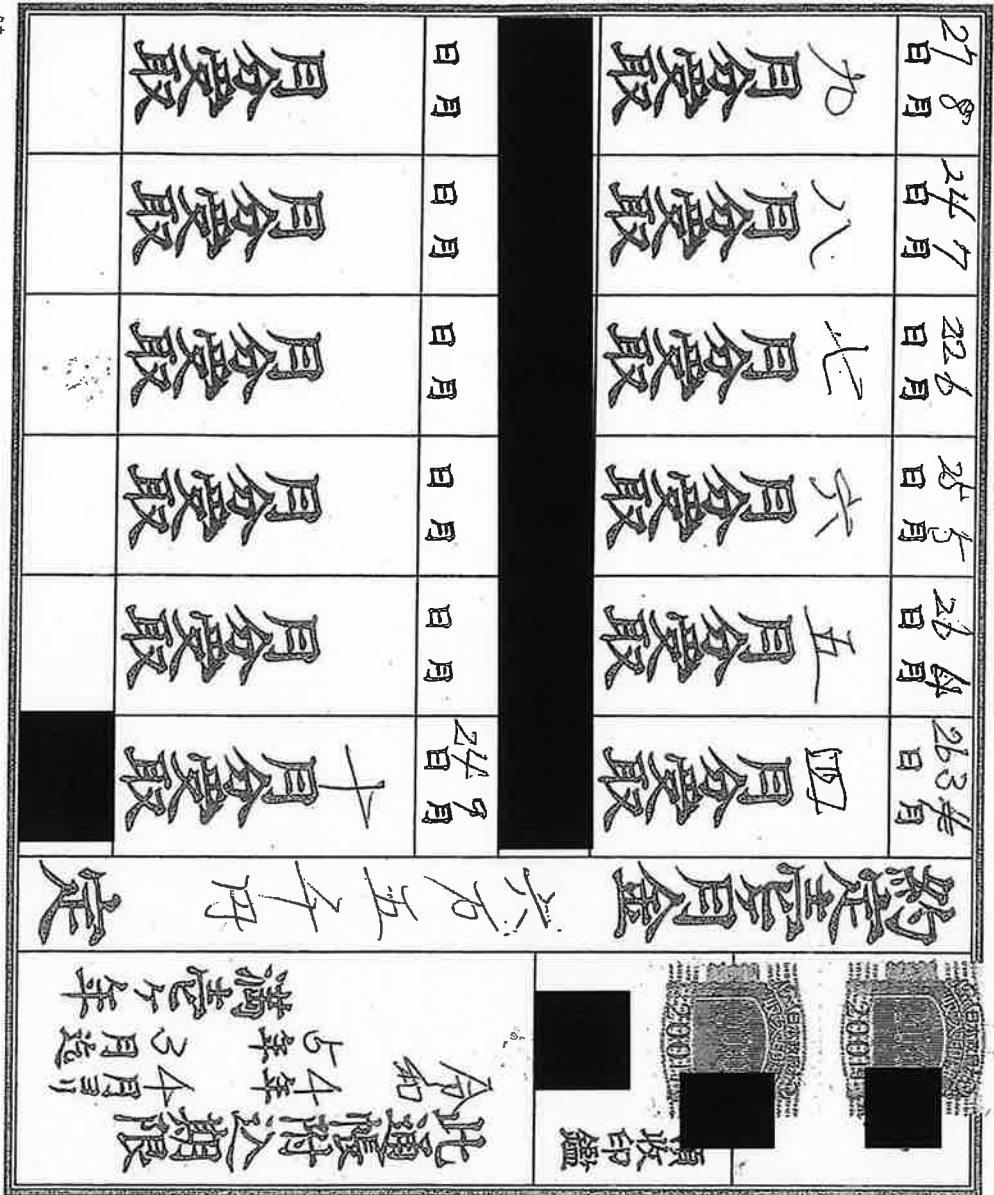 此通帳附込期限
令和4年4月ヨリ
5年3月迄
満壱ヶ年
領收印鑑
約定壱ヶ月金 六万五千円 定
4年3月26日 四月分受取
4月26日 五月分受取
5月25日 六月分受取
6月22日 七月分受取
7月24日 八月分受取
8月27日 九月分受取
9月24日 十月分受取
月 日 月分受取
月 日 月分受取
月 日 月分受取
月 日 月分受取
月 日 月分受取